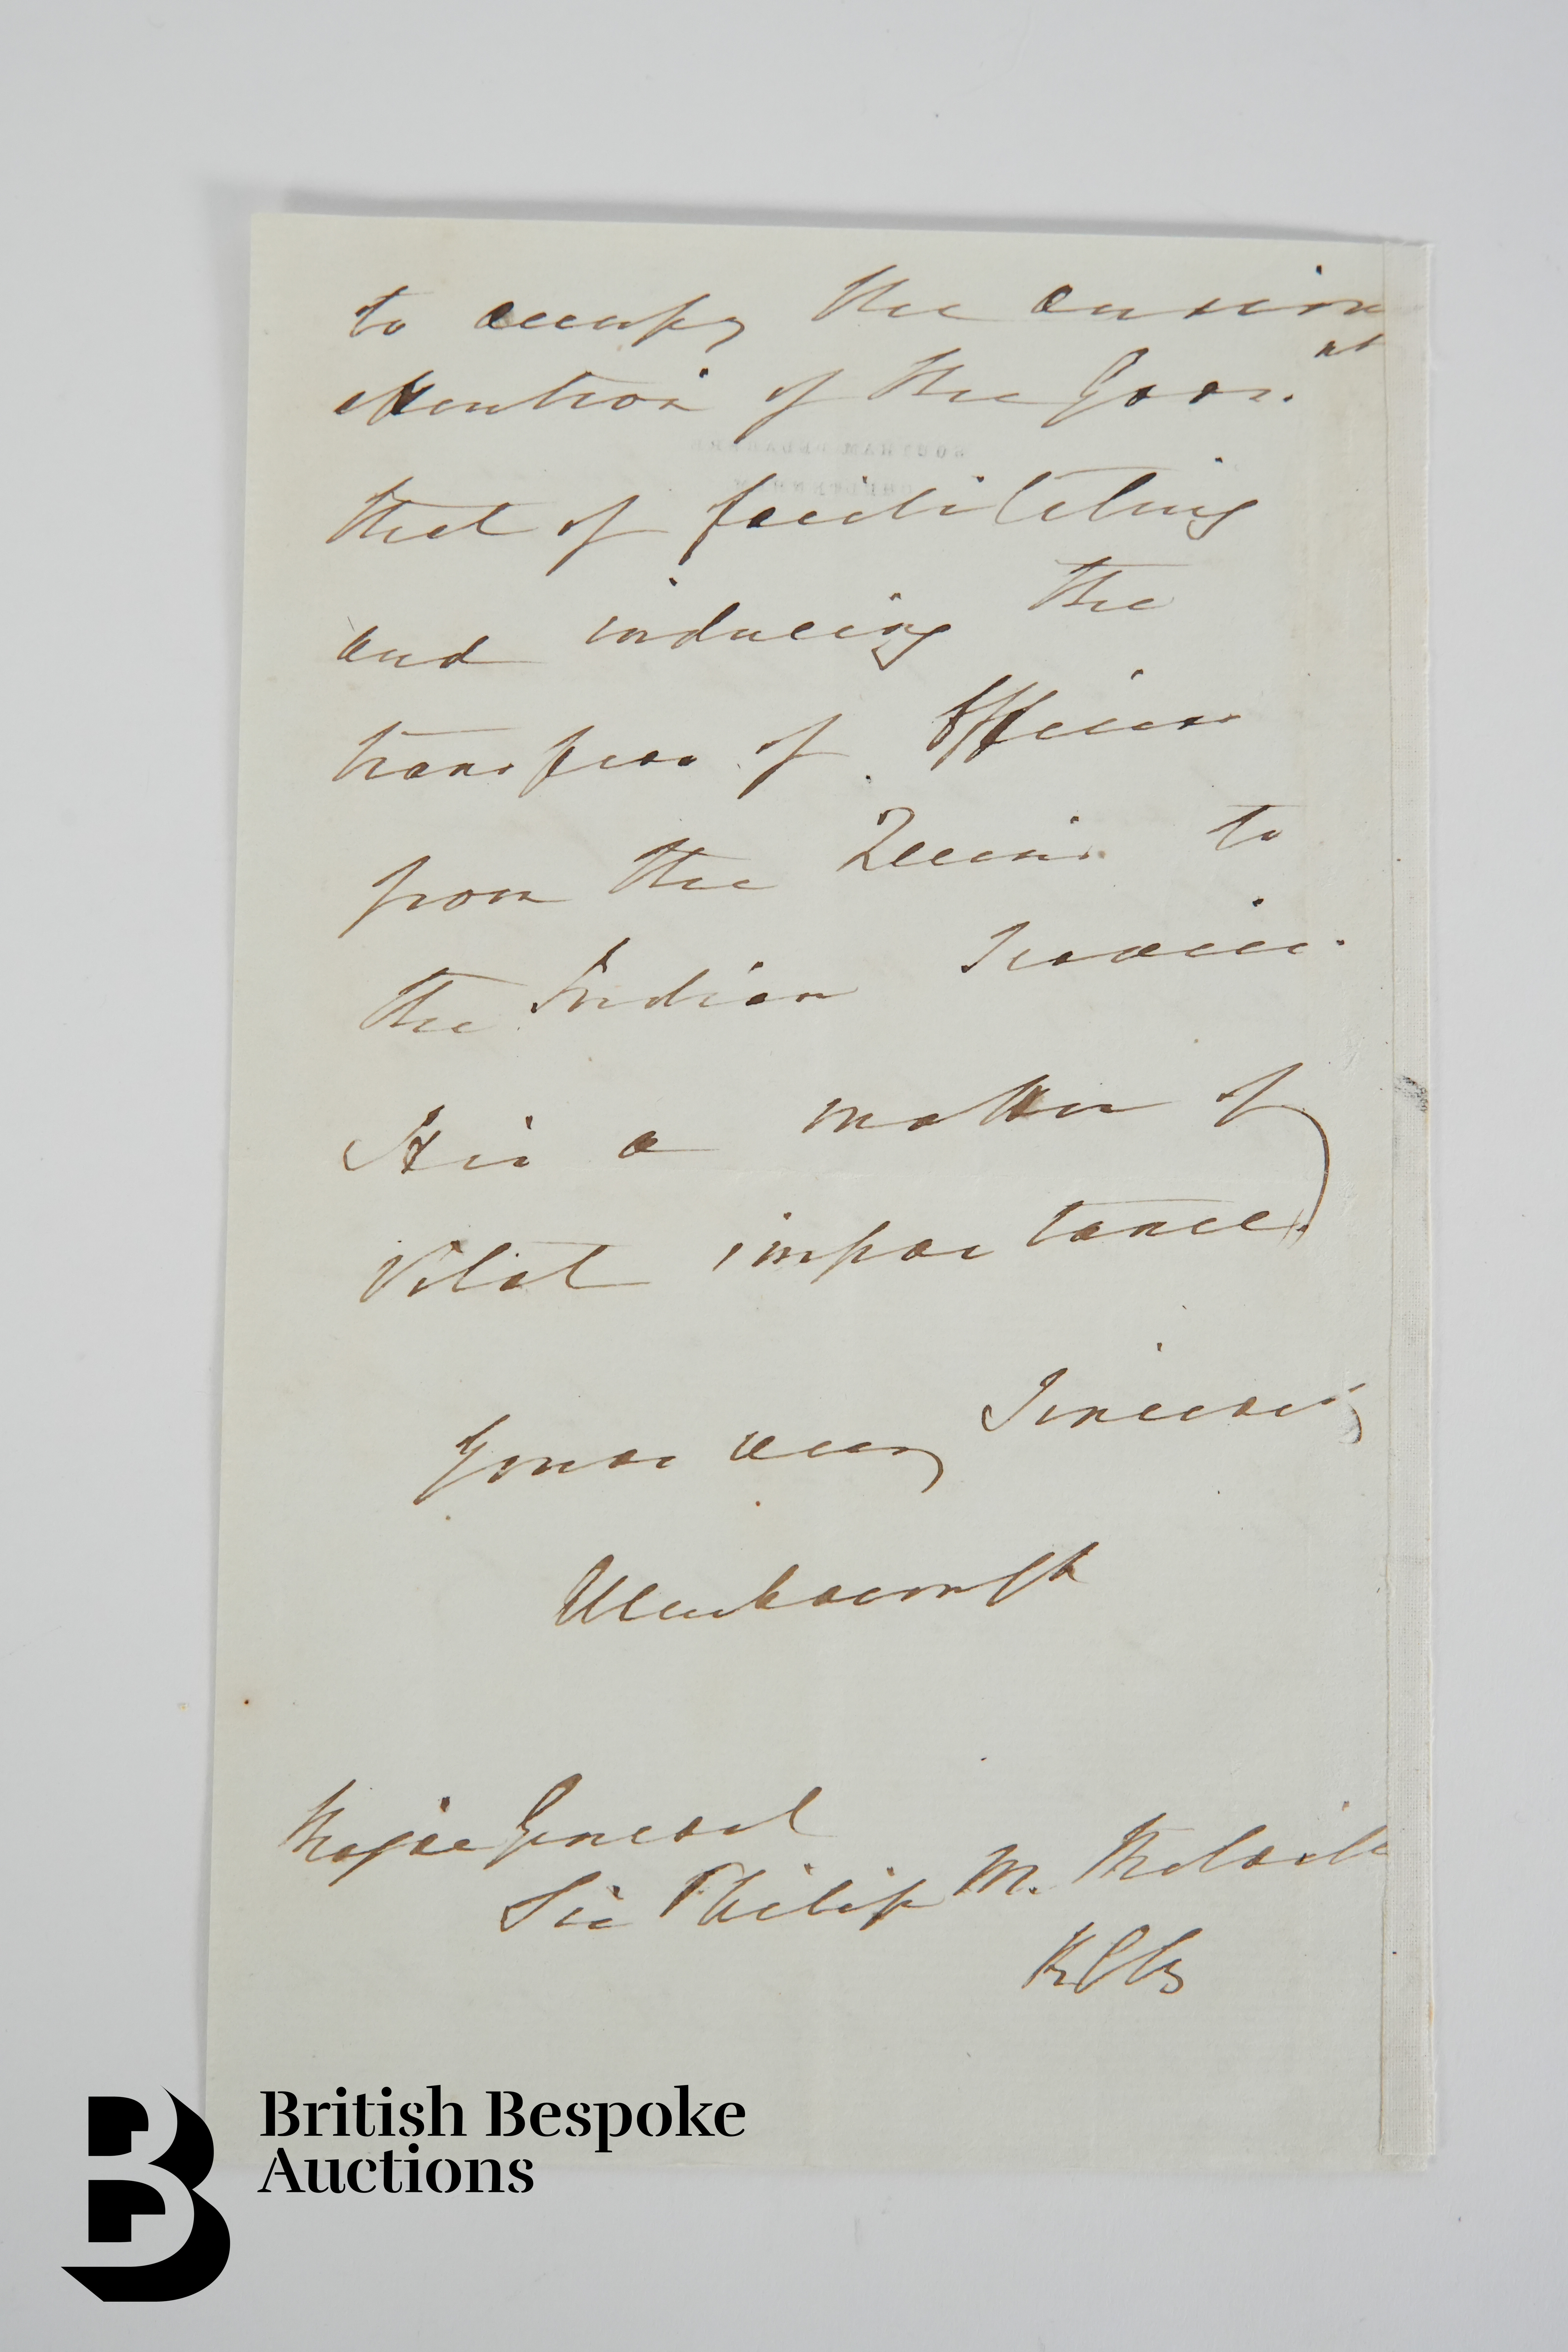 to occupy the anxious
attention of the Govr.nt
that of facilitating
and inducing the
transfer of Officers
from the Queen's to
the Indian Service.
It is a matter of
vital importance.
Yours very sincerely
Ellenborough
Major General
Sir Philip M. Melvill
KCB
British Bespoke
Auctions